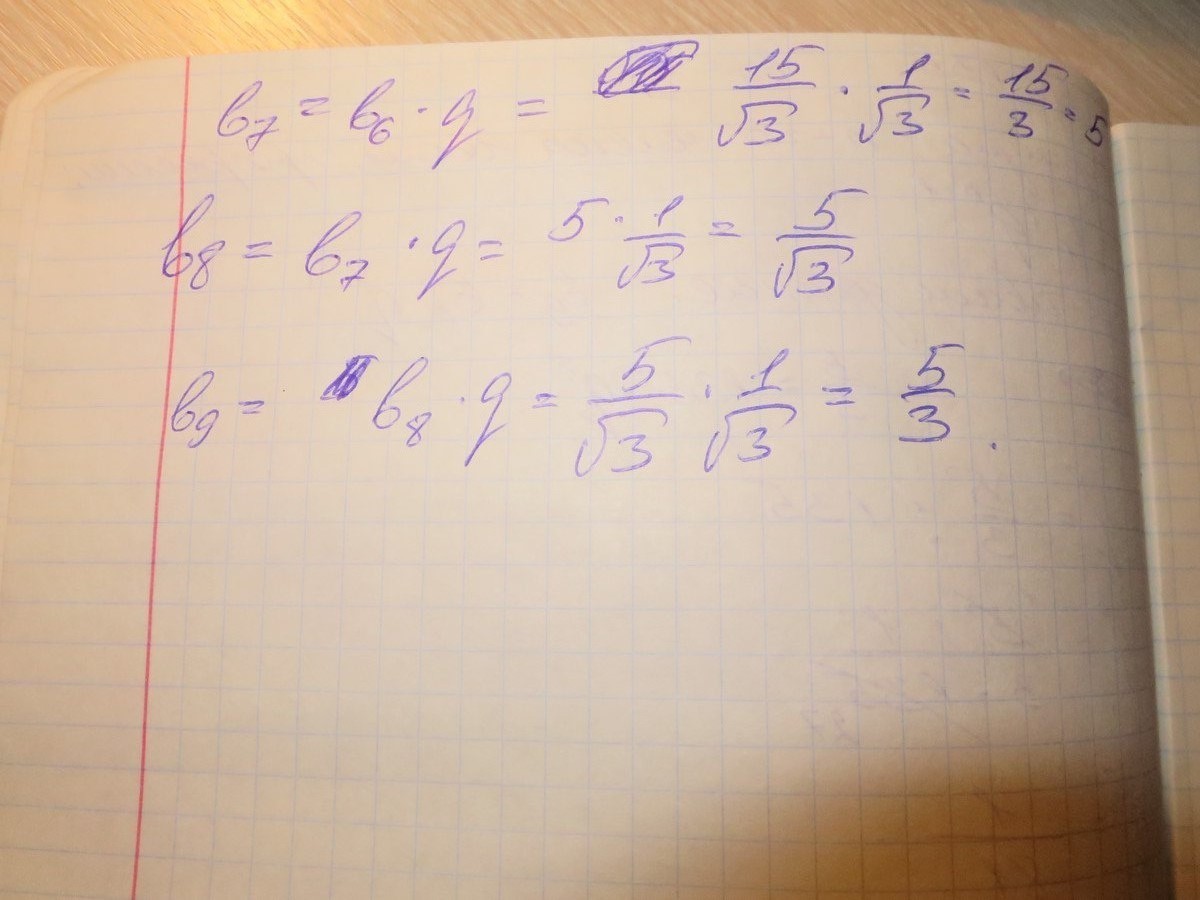 b₇ = b₆ · q = 15/√3 · 1/√3 = 15/3 = 5
b₈ = b₇ · q = 5 · 1/√3 = 5/√3
b₉ = b₈ · q = 5/√3 · 1/√3 = 5/3.